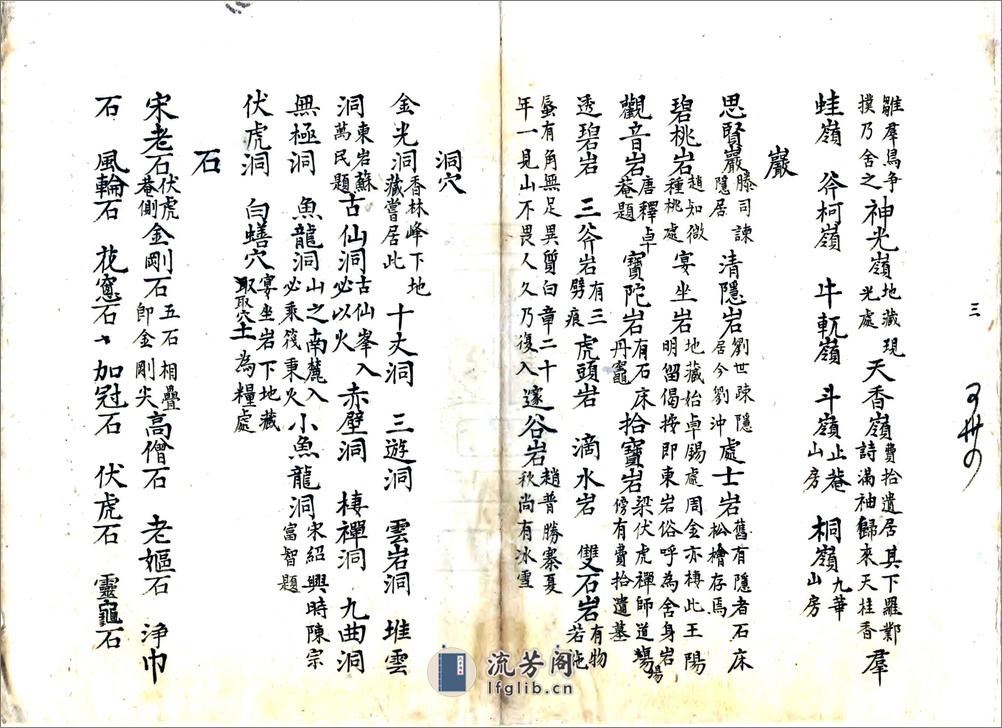 雛羣鳥争撲乃舍之神光嶺地藏現光處天香嶺費拾遺居其下羅鄴詩滿袖歸來天桂香羣
蛙嶺 斧柯嶺 牛軛嶺 斗嶺止菴山房桐嶺九華山房
巖
思賢巖滕司諫隱居清隱岩劉世疎隱居今劉沖處士岩舊有隱者石床松檜存焉
碧桃岩趙知微種桃處宴坐岩地藏始卓錫處周金亦棲此王陽明留偈按即東岩俗呼為舍身岩
觀音岩唐釋卓菴題寶陀岩有石床丹竈拾寶岩梁伏虎禪師道塲傍有費拾遺墓
透碧岩 三斧岩有三劈痕虎頭岩 滴水岩 雙石岩有物若蚯
蜃有角無足異質白章二十年一見山不畏人久乃復入邃谷岩趙普勝寨夏秋尚有冰雪
洞穴
金光洞香林峰下地藏嘗居此十丈洞 三遊洞 雲岩洞 堆雲
洞東岩蘇萬民題古仙洞古仙峯入必以火赤壁洞 棲禪洞 九曲洞
無極洞 魚龍洞山之南麓入必乘筏秉火小魚龍洞宋紹興時陳宗富智題
伏虎洞 白蟮穴宴坐岩下地藏取穴土為糧處
石
宋老石伏虎菴側金剛石五石相疊即金剛尖高僧石 老嫗石 淨巾
石 風輪石 花窻石 加冠石 伏虎石 靈龜石
三
流芳阁
lfglib.cn